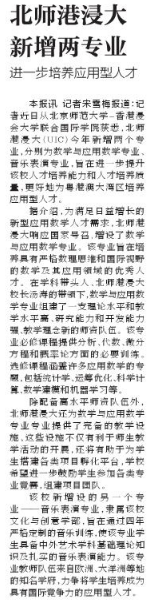 北师港浸大
新增两专业
进一步培养应用型人才
本报讯 记者宋雪梅报道:记
者近日从北京师范大学-香港浸
会大学联合国际学院获悉,北师
港浸大(UIC)今年新增两个专
业,分别为数学与应用数学专业、
音乐表演专业,旨在进一步提升
该校人才培养能力和人才培养质
量,更好地为粤港澳大湾区培养
应用型人才。
据介绍,为满足日益增长的
新型应用数学人才需求,北师港
浸大响应国家号召,增设了数学
与应用数学专业。该专业旨在培
养具有严格数理思维和国际视野
的数学及其应用领域的优秀人
才。在学科带头人、北师港浸大
校长汤涛的带领下,数学与应用
数学专业组建了一支理论水平和教
学水平高、研究能力和开发能力
强、教学理念新的师资队伍。该专
业必修课程提供分析、代数、微分
方程和概率论方面的必要训练。
选修课程涵盖许多应用数学的专
题,包括统计学、运筹优化、科学计
算、数学建模和机器学习等。
除配备高水平师资队伍外,
北师港浸大还为数学与应用数学
专业专业提供了完备的教学设
施,这些设施不仅有利于师生教
学活动的开展,还将有助于为学
生搭建各类项目孵化平台,学校
希望进一步鼓励学生参加各类专
业竞赛、组建项目团队。
该校新增设的另一个专
业——音乐表演专业,隶属该校
文化与创意学部,旨在通过四年
严格定制的音乐训练,使该专业学
生具备中外艺术学科基础理论知
识及扎实的音乐表演能力。该专
业教师队伍来自欧洲、大洋洲等地
的知名学府,力争将学生培养成为
具有国际竞争力的应用型人才。